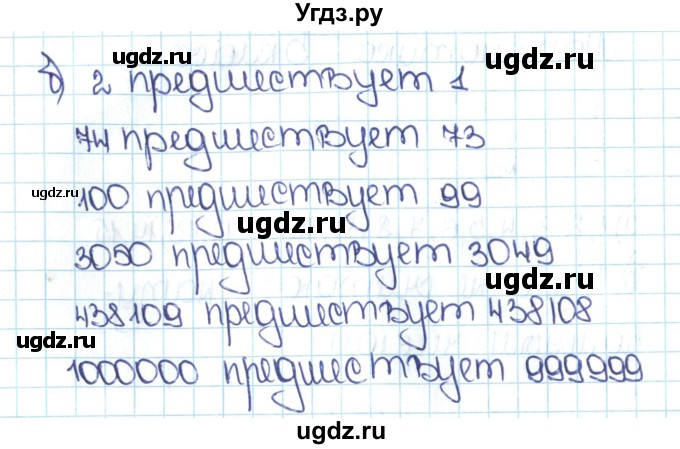 Угдз.ру
ugdz.ru
ugdz.ru
б) 2 предшествует 1
74 предшествует 73
ugdz.ru
100 предшествует 99
ugdz.ru
3050 предшествует 3049
ugdz.ru
438109 предшествует 438108
ugdz.ru
1000000 предшествует 999999
ugdz.ru